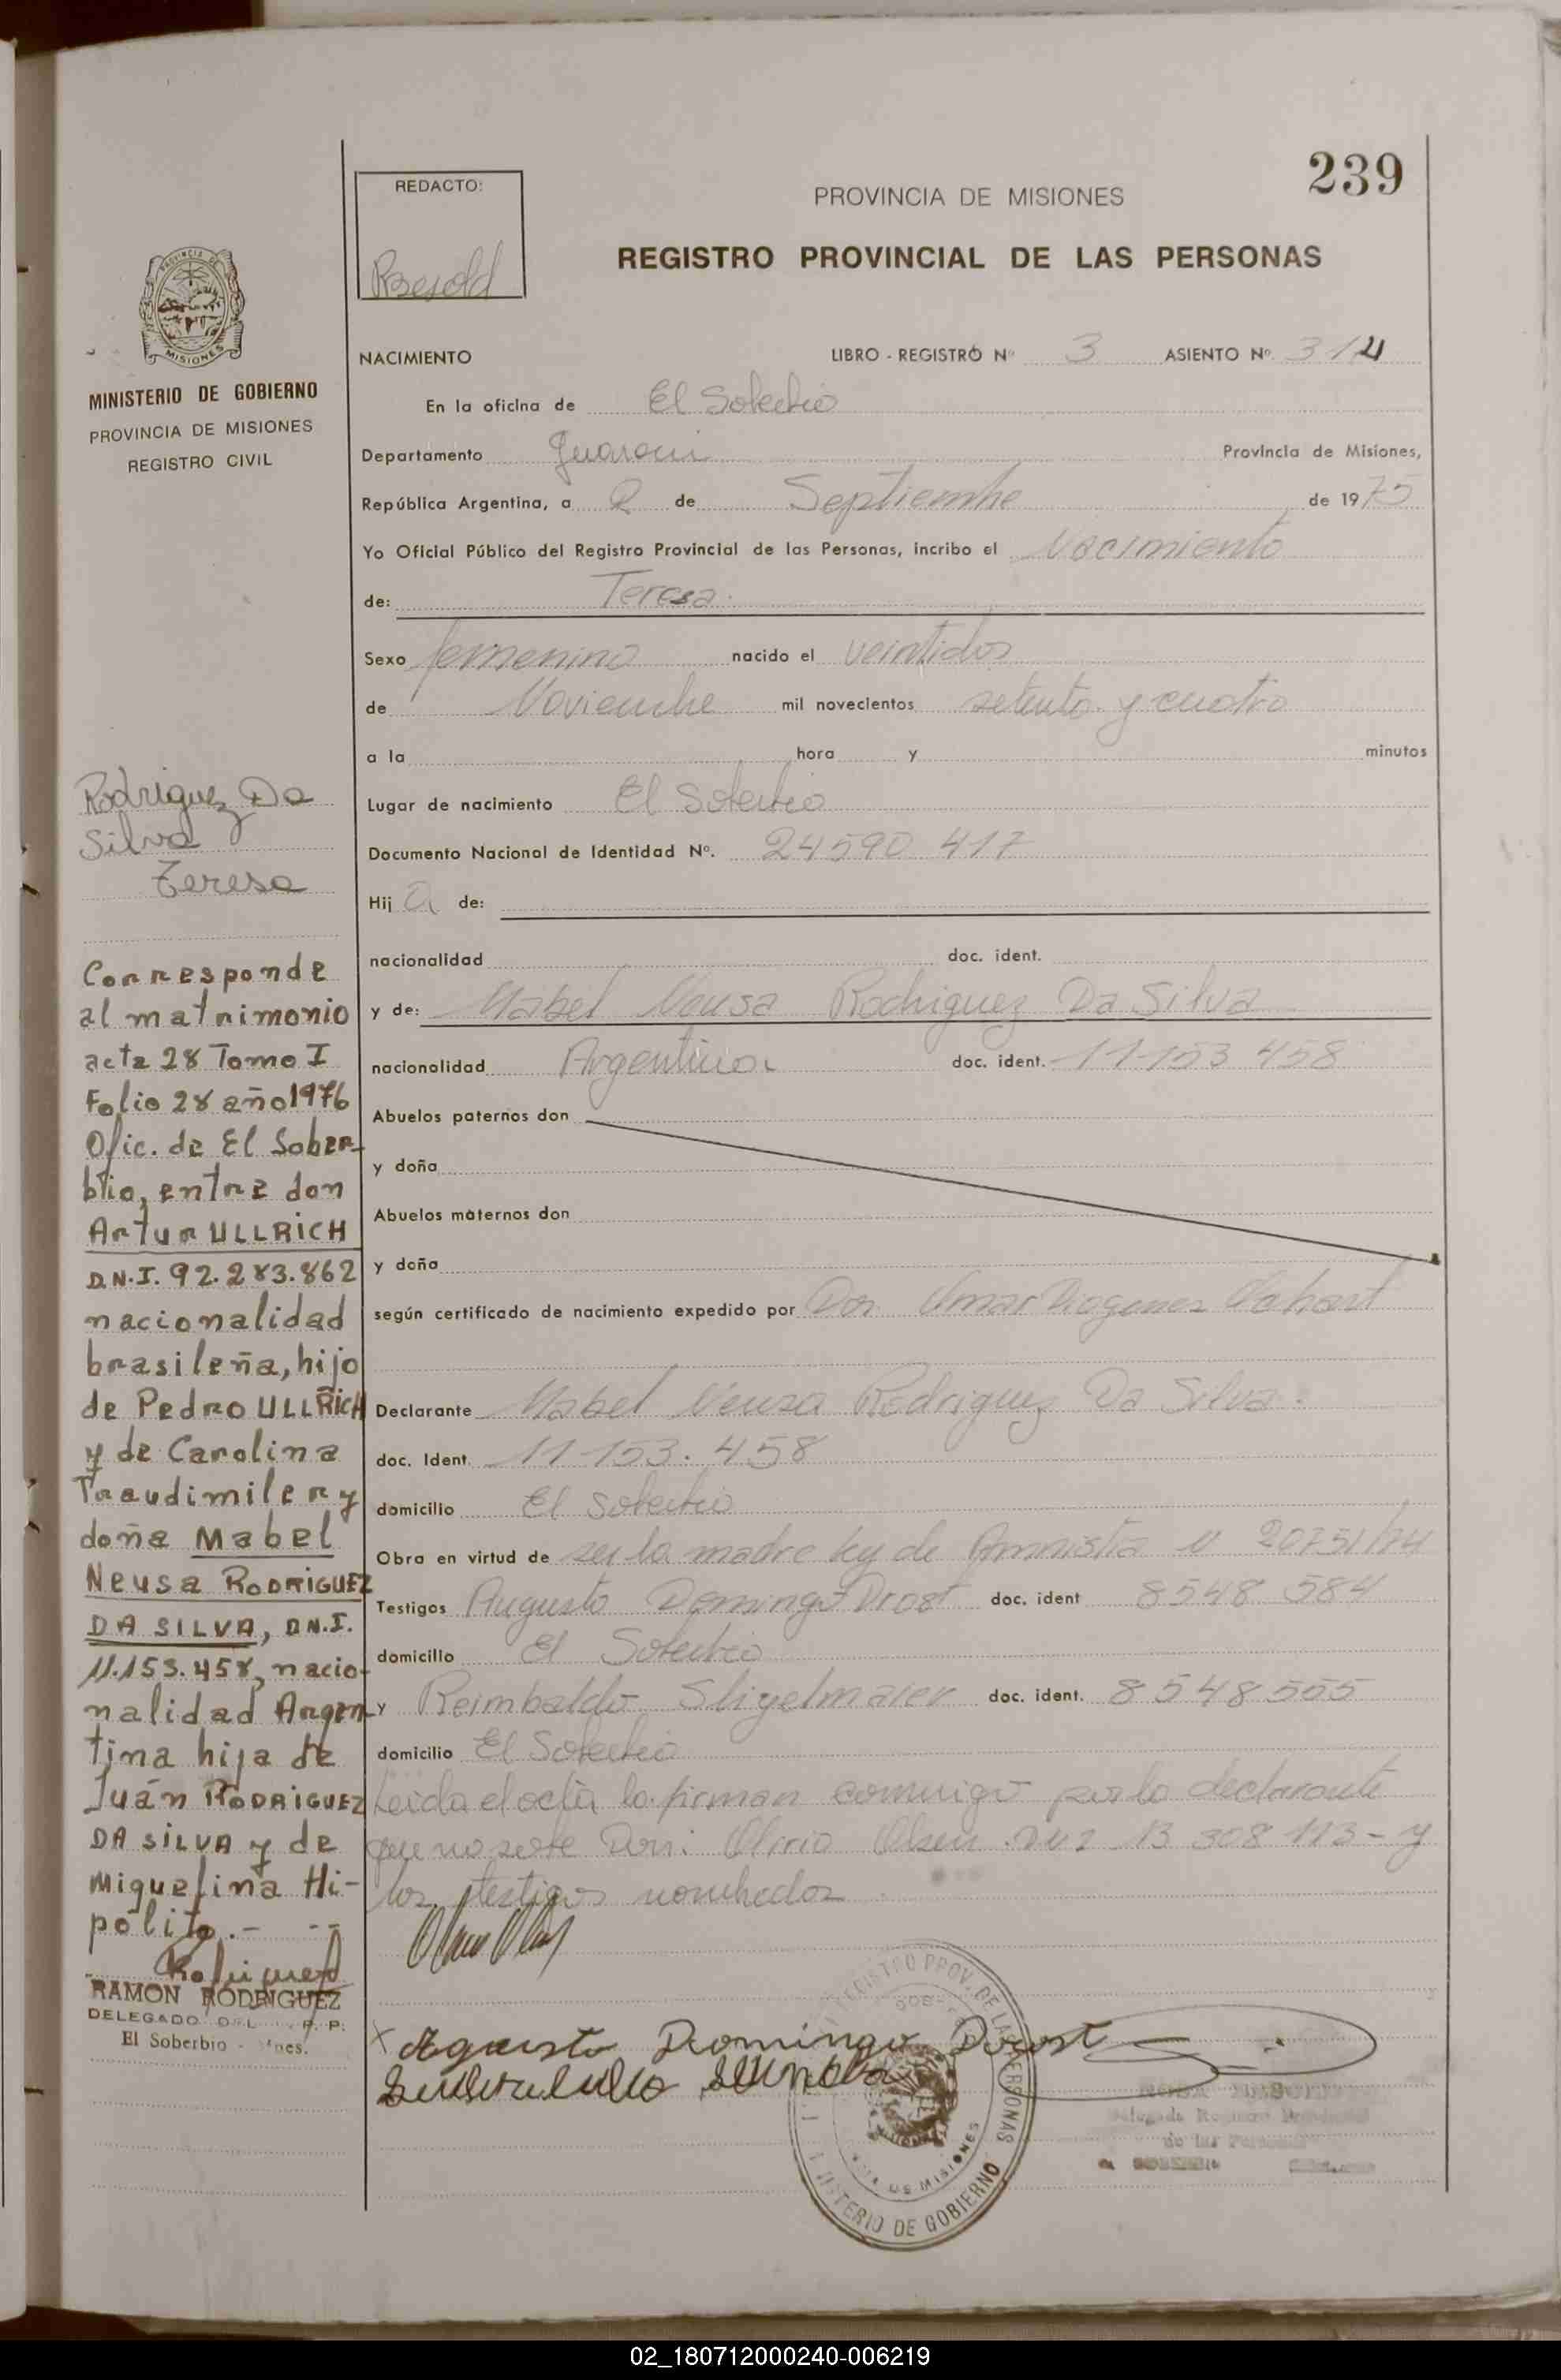 239
REDACTO:
PROVINCIA DE MISIONES
REGISTRO PROVINCIAL DE LAS PERSONAS
MISIONES
MINISTERIO DE GOBIERNO
PROVINCIA DE MISIONES
REGISTRO CIVIL
NACIMIENTO LIBRO - REGISTRO Nº 3 ASIENTO Nº 314
En la oficina de El Soberbio
Departamento Guarani Provincia de Misiones,
República Argentina, a 2 de Septiembre de 1975
Yo Oficial Público del Registro Provincial de las Personas, incribo el Nacimiento
de: Teresa.
Sexo femenino nacido el veintidos
de Noviembre mil novecientos setenta y cuatro
a la hora y minutos
Lugar de nacimiento El Soberbio
Documento Nacional de Identidad Nº. 24590 417
Hij a de:
nacionalidad doc. ident.
y de: Mabel Neusa Rodriguez Da Silva
nacionalidad Argentina doc. ident. 11-153 458
Abuelos paternos don
y doña
Abuelos maternos don
y doña
según certificado de nacimiento expedido por Don Omar Diogenes
Declarante Mabel Neusa Rodriguez Da Silva.
doc. Ident. 11-153. 458
domicilio El Soberbio
Obra en virtud de ser la madre ley de Amnistia N 20751/74
Testigos Augusto Domingo Drost doc. ident 8548 584
domicilio El Soberbio
y Reimbaldo Stigelmaier doc. ident. 8548555
domicilio El Soberbio
Leida el acta la firman conmigo por la declarante
que no sabe Don: Olirio Olsen DNI 13 308 113- y
los testigos nombrados
Agusto Domingo Drost
Rodriguez Da
Silva
Teresa
Corresponde
al matrimonio
acta 28 Tomo I
Folio 28 año 1976
Ofic. de El Sober-
bio, entre don
Artur ULLRICH
D.N.I. 92.283.862
nacionalidad
brasileña, hijo
de Pedro ULLRICH
y de Carolina
Traudimiler y
doña Mabel
Neusa RODRIGUEZ
DA SILVA, D.N.I.
11.153.458, nacio-
nalidad Argen-
tina hija de
Juán RODRIGUEZ
DA SILVA y de
Miguelina Hi-
pólito.-
RAMON RODRIGUEZ
DELEGADO DEL R. P. P.
El Soberbio - Mnes.
REGISTRO PROV. DE LAS PERSONAS
MINISTERIO DE GOBIERNO
DE MISIONES
Delegada Registro Provincial
de las Personas
02_180712000240-006219